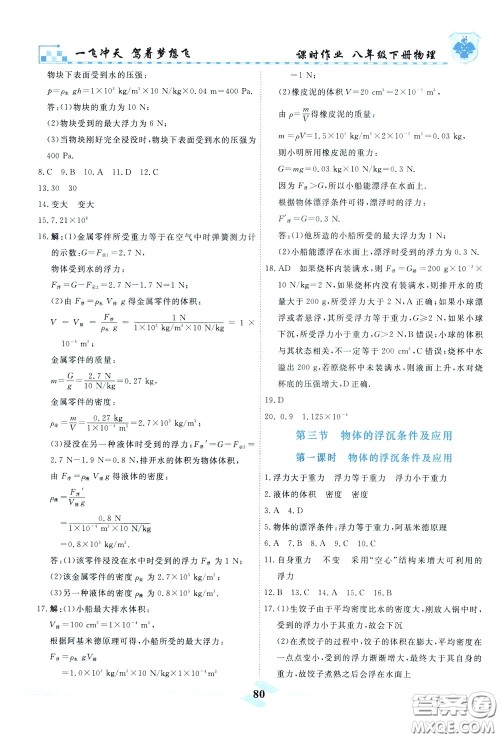 一飞冲天 驾着梦想飞
课时作业 八年级下册物理
物块下表面受到水的压强:
p=ρ水gh=1×10³ kg/m³×10 N/kg×0.04 m=400 Pa.
答:(1)物块的重力为10 N;
(2)物块受到的最大浮力为6 N;
(3)当物块刚好完全浸没时,物块下表面受到水的压强为
400 Pa.
8.C 9.B 10.A 11.D 12.C
13.30 30
14.变大 变大
15.7.21×10⁶
16.解:(1)金属零件所受重力等于在空气中时弹簧测力计
的示数:G=F示=2.7 N,
物体受到水的浮力:
F浮=G-F示1=2.7 N-1.7 N=1 N
(2)由F浮=ρ水V排g得金属零件的体积:
V=V排=F浮/ρ水g=1 N/1×10³ kg/m³×10 N/kg=1×
10⁻⁴ m³
金属零件的质量:
m=G/g=2.7 N/10 N/kg=0.27 kg,
金属零件的密度:
ρ物=m/V=0.27 kg/1×10⁻⁴ m³=2.7×10³ kg/m³
(3)浸没在另一种液体时受到的浮力:F浮'=G-F示2=
2.7 N-1.9 N=0.8 N,排开水的体积为物体体积,
由F浮=ρ液V排g得液体的密度:
ρ液=F浮'/V排g
=0.8 N/1×10⁻⁴ m³×10 N/kg
=0.8×10³ kg/m³
答:(1)该零件浸没在水中时受到的浮力F浮为1 N;
(2)该金属零件的密度ρ物为2.7×10³ kg/m³;
(3)另一种液体的密度ρ液为0.8×10³ kg/m³.
17.解:(1)小船最大排水体积:
V排=100 cm³=1×10⁻⁴ m³,
根据阿基米德原理,小船所受的最大浮力:
F浮=ρ水gV排
=1.0×10³ kg/m³×10 N/kg×1×10⁻⁴ m³
=1 N;
(2)橡皮泥的体积V=20 cm³=2×10⁻⁵ m³
由ρ=m/V得橡皮泥的质量:
m=ρV=1.5×10³ kg/m³×2×10⁻⁵ m³=0.03 kg
则小明所用橡皮泥的重力:
G=mg=0.03 kg×10 N/kg=0.3 N,
因为F浮>G,所以小船能漂浮在水面上.
根据物体漂浮条件可得:
F'浮=G=0.3 N.
答:(1)他所造的小船所受的最大浮力为1 N.
(2)小船能漂浮在水面上,漂浮时受到的浮力为0.3 N.
18.AD 如果烧杯内装满水,则F浮=G排=200 g×10⁻³×
10 N/kg=2 N;如果烧杯内没有装满水,则排开水的质
量大于200 g,所受浮力大于2 N,A正确;如果小球漂
浮或者悬浮,其所受浮力等于重力,G≥2 N,如果小球
下沉,所受浮力小于重力,G>2 N,B错误;小球的体积
与其状态相关,不一定等于200 cm³,C错误;烧杯中水
溢出200 g,若烧杯原来未装满水,则液面上升,水对烧
杯底的压强增大,D正确.
19.D
20.0.9 1.125×10⁻⁴
第三节 物体的浮沉条件及应用
第一课时 物体的浮沉条件及应用
1.浮力大于重力 浮力等于重力 浮力小于重力
2.液体的体积 密度 密度
3.A 4.D
5.物体的漂浮条件:浮力等于重力,阿基米德原理
6.A 7.B 8.A 9.C 10.C
11.自身重力 不变 采用“空心”结构来增大可利用的
浮力
12.B 13.C 14.A 15.D
16.(1)生饺子由于受到的重力大于浮力,刚放入锅中时,
受到的浮力小于重力,故会下沉
(2)在煮饺子的过程中,饺子的体积在增大,所受浮力在
一点点变大,当受到的浮力渐渐增大,最终大于重力时,
故饺子煮熟之后会浮在水面上
80